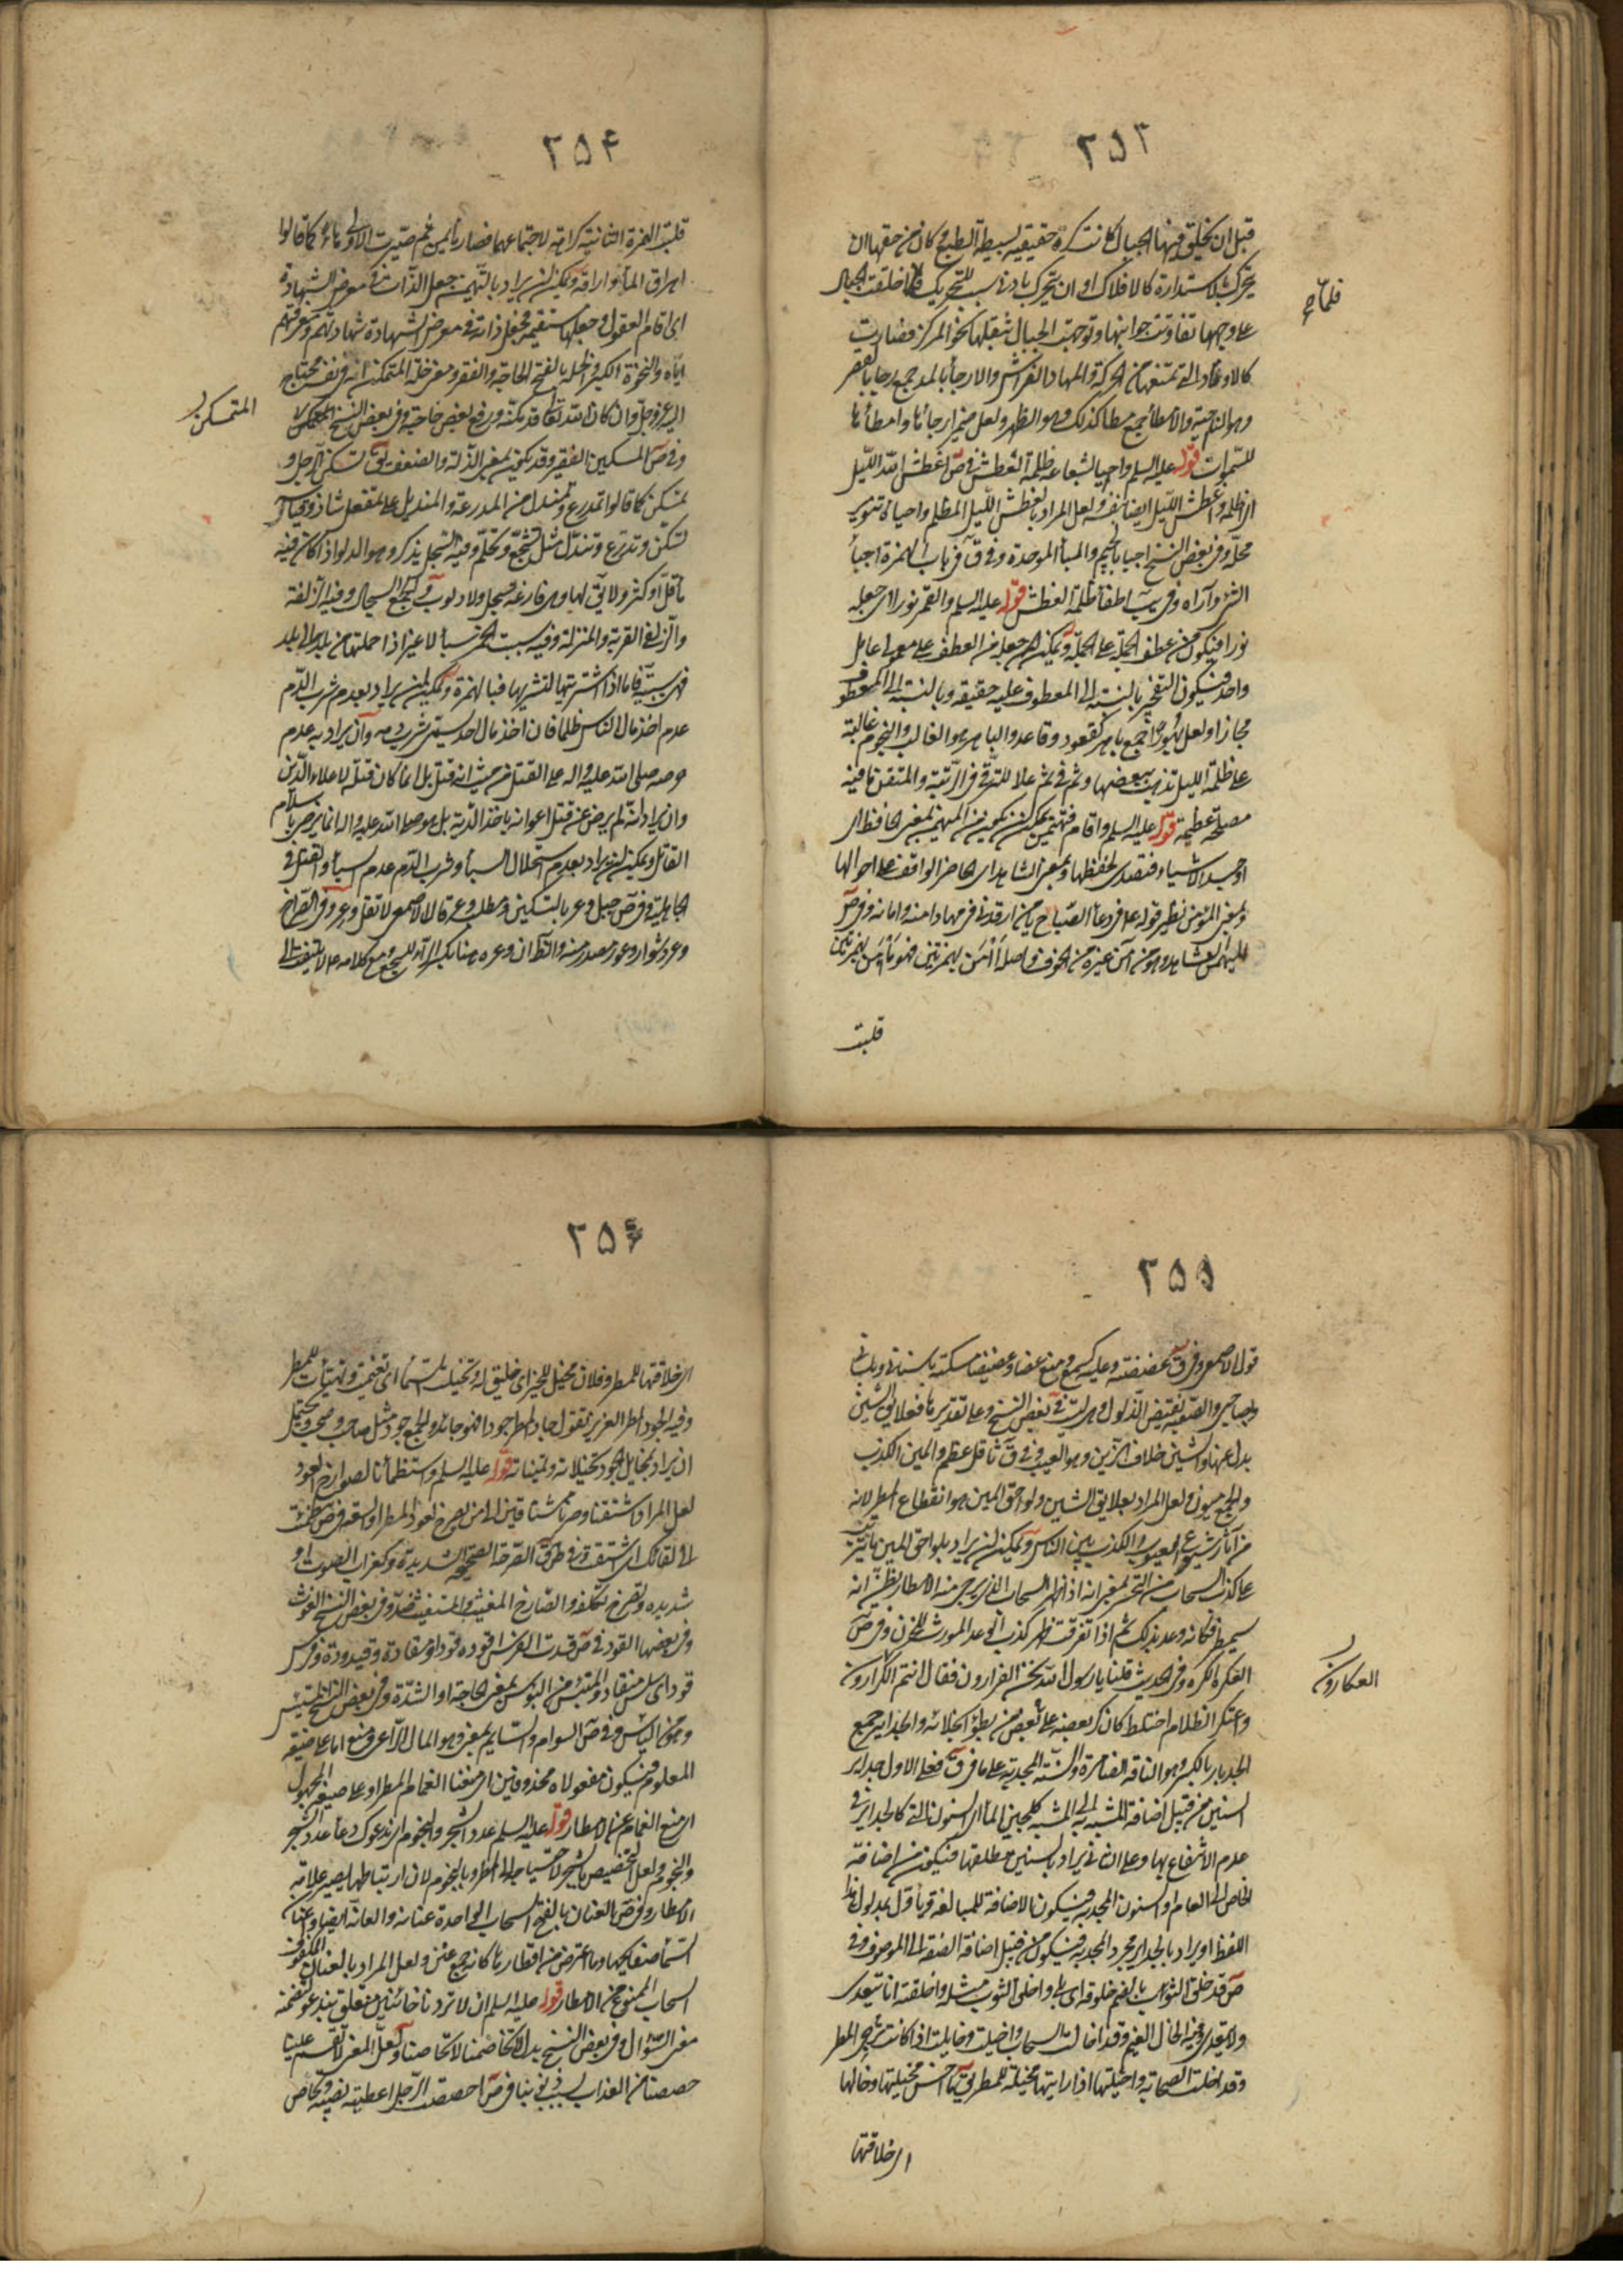 ٢٥٣
قبل ان يخلق فيها الجبال كانت كرة حقيقية بسيطة الطبع وكان من حقها ان
يتحرك بالاستدارة كالافلاك او ان يتحرك بادنى سبب للتحريك فلما خلقت الجبال
فلما صح
على وجهها تفاوتت جوانبها وتوجهت الجبال بثقلها نحو المركز فصارت
كالاوتاد التي تمنعها من الحركة والمهاد الفراش والارجاء بالمد جمع رجا بالقصر
وهو الناحية والامطاء جمع مطا كذلك وهو الظهر ولعل ضمير ارجائها وامطائها
للسموات قوله عليه السلم واحيا لشعاعه ظلمة الغطش في ص اغطش الله الليل
اي اظلمه واغطش الليل ايضا بنفسه ولعل المراد بغطش الليل المظلم واحيائه تنوير
محله وفي بعض النسخ اجبا بالجيم والباء الموحدة وفي ق في باب الهمزة اجبأ
الشئ واراه وفي بعضها اطفأ ظلمة الغطش قوله عليه السلم والقمر نورا اي جعله
نورا فيكون من عطف الجملة على الجملة ويمكن جعله من العطف على معمولي عامل
واحد فيكون التفجير بالنسبة الى المعطوف عليه حقيقة وبالنسبة الى المعطوف
مجازا ولعل بهورا جمع باهر كقعود وقاعد والباهر هو الغالب والنجوم غالبة
على ظلمة الليل تذهب ببعضها وثم في ثم علا للترقي في الرتبة والمتقن ما فيه
مصلحة عظيمة قوله عليه السلم واقام فتهيمن يمكن ان يكون من المهيمن بمعنى الحافظ اي
اوجد الاشياء فتصدى لحفظها وبمعنى الشاهد اي الحاضر الواقف على احوالها
وبمعنى المؤمن نظير قوله في دعاء الصباح يا من ارقدني في مهاد امنه وامانه وفي ص
المهيمن الشاهد وهو من آمن غيره من الخوف واصله أأمن بهمزتين فهو مؤأمن بهمزتين
قلبت
٢٥٤
قلبت الهمزة الثانية كراهة لاجتماعهما فصار مأيمن ثم صيرت الاولى هاء كما قالوا
اهراق الماء واراقه ويمكن ان يراد بالتهيمن جعل الذات في معرض الشهادة
اي اقام العقول وجعلها مستقيمة فجعل ذاته في معرض الشهادة شهادتهم ومعرفتهم
اياه والنخوة الكبر والخلة بالفتح الحاجة والفقر ومعنى خلة المتمكن انه في نفسه محتاج
المتمسكن ل
اليه عز وجل وان كان الله تعالى قد مكنه ورفع بعض حاجته وفي بعض النسخ المتمكن
وفي ص المسكين الفقير وقد يكون بمعنى الذلة والضعف يق تسكن الرجل و
تمسكن كما قالوا تمدرع وتمندل من المدرعة والمنديل على تمفعل شاذ وقياسه
تسكن وتدرع وتندل مثل تشجع وتحلم وفيه السجل يذكر وهو الدلو اذا كان فيه
ماء قل او كثر ولا يق لها وهي فارغة سجل ولا ذنوب والجمع السجال وفيه الزلفة
والزلفى القربة والمنزلة وفيه سبيت الخمر سبأ لا غير اذا حملتها من بلد الى بلد
فهي سبية فاما اذا اشتريتها لتشربها فبالهمزة ويمكن ان يراد بعدم شرب الدم
عدم اخذ مال الناس ظلما فان اخذ مال احد يسمى شرب دمه وان يراد به عدم
حرصه صلى الله عليه واله على القتل من حيث انه قتل بل انما كان قتله لاعلاء الدين
وان يراد انه لم يرض عن قتل اعوانه باخذ الدية بل هو صلى الله عليه واله انما يرضى باسلام
القاتل ويمكن ان يراد بعدم استحلال السبأ وشرب الدم عدم السبأ والقتل في
الجاهلية وفي ص جبل وعر بالتسكين ومطلب وعر قال الاصمعي لا تقل وعر وفي القراح
وعر دشوار وعور مصدر منه والظاهر ان وعره هنا بكسر الراء للسجع مع كلامه لا يلتفت الى
٢٥٥
قول الاصمعي وفي ق غضغضته وعليه كسمع ومنع عضا وعضيضا مسكته باسناني وبلساني
وبصاحبي والصعبة نقيض الذلول وهي ليست في بعض النسخ وعلى تقديرها فعلايق الشين
بدل عنها والشين خلاف الزين وهو العيب وفي ق تأثل عظم والمين الكذب
والجمع ميون ولعل المراد بعلايق الشين ولواحق المين هو انقطاع المطر لانه
من آثار شيوع العيوب والكذب بين الناس ويمكن ان يراد بلواحق المين ما يترتب
على كذب السحاب من التحسر بمعنى انه اذا ظهر السحاب الذي يرجى منه الامطار يظن انه
سيمطر فكانه وعد بذلك ثم اذا تفرقت ظهر كذب الوعد المورث للحزن وفي ص
العكرة الكرة وفي الحديث قلنا يا رسول الله نحن الفرارون فقال انتم الكرارون
العكارون ل
واعتكر الظلام اختلط كان كر بعضه على بعض من بطؤ انجلائه والحدابير جمع
الحدبار بالكسر وهو الناقة الضامرة والسنة المجدبة على ما في ق فعلى الاول حدابير
السنين من قبيل اضافة المشبه به الى المشبه كلجين الماء اي السنون التي كالحدابير في
عدم الانتفاع بها وعلى الثاني يراد بالسنين مطلقها فيكون من اضافة
الخاص الى العام او السنون المجدبة فيكون الاضافة للمبالغة
اللفظ او يراد بالحدابير مجرد المجدبة فيكون من قبيل اضافة الصفة الى الموصوف وفي
ص قد خلق الثوب بالضم خلوقة اي بلي واخلق الثوب مثله واخلقته انا يتعدى
ولا يتعدى وفيه الخال الغيم وقد اخالت السحاب واخيلت وخايلت اذا كانت ترجى المطر
وقد اخلت السحابة واخيلتها اذا رايتها مخيلة للمطر يق ما احسن مخيلتها وخالها
اي خلاقتها
٢٥٦
اي خلاقتها للمطر وفلان مخيل للخير اي خليق له وتخيلت السماء اي تغيمت وتهيأت للمطر
وفيه الجود المطر الغزير تقول جاد المطر جودا فهو جائد والجمع جود مثل صاحب وصحب ويحتمل
ان يراد بمخايل الجود تخيلاته وتمنياته قوله عليه السلم واستظمأنا لصوارخ العود
لعل المراد اشتقنا وصرنا مشتاقين الى من يصرخ لعود المطر او لسقيه في ص ظمئت
الى لقائك اي اشتقت وفي ق الصرخة الصيحة الشديدة وكغراب الصوت او
شديده وتصرخ تكلفه والصارخ المغيث والمستغيث ضد وفي بعض النسخ الغوث
وفي بعضها القود في ص قدت الفرس اقوده قودا ومقادة وقيدودة وفرس
قود اي سلس منقاد والمبتئس من البؤس بمعنى الحاجة او الشدة وفي بعض النسخ المتيئس
وهو من اليأس وفي ص السوام والسايم بمعنى وهو المال الراعي ومنع اما على صيغة
المعلوم فيكون مفعولاه محذوفين اي منعنا الغمام المطر او على صيغة المجهول
اي منع الغمام عن الامطار قوله عليه السلم عدد الشجر والنجوم اي ندعوك دعاء عدد الشجر
والنجوم ولعل التخصيص بالشجر لاحتياجه الى المطر وبالنجوم لان ارتباطها يصير علامة
الامطار وفي ص العنان بالفتح السحاب الواحدة عنانة والعانة ايضا واعنان
السماء صفايحها وما اعترض من اقطارها كانه جمع عنن ولعل المراد بالعنان المكفوف
السحاب الممنوع من الامطار قوله عليه السلم ان لا تردنا خائبين متعلق بندعو لتضمنه
معنى السؤال وفي بعض النسخ بدل لا تخاصمنا لا تحاصنا ولعل المعنى لا تقسم علينا
حصصنا من العذاب بسبب ذنوبنا في ص احصصت الرجل اعطيته نصيبه وتحاص